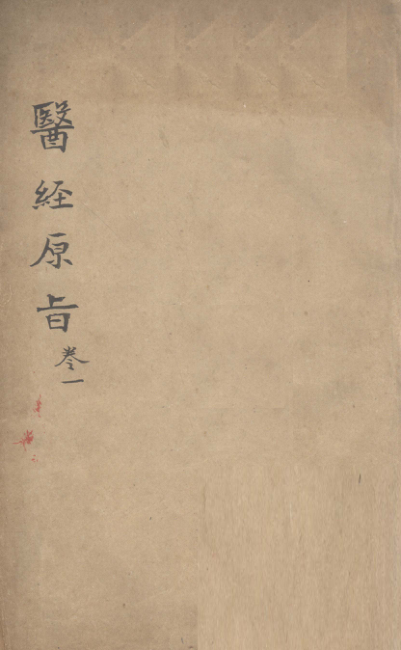 醫經原旨
卷一